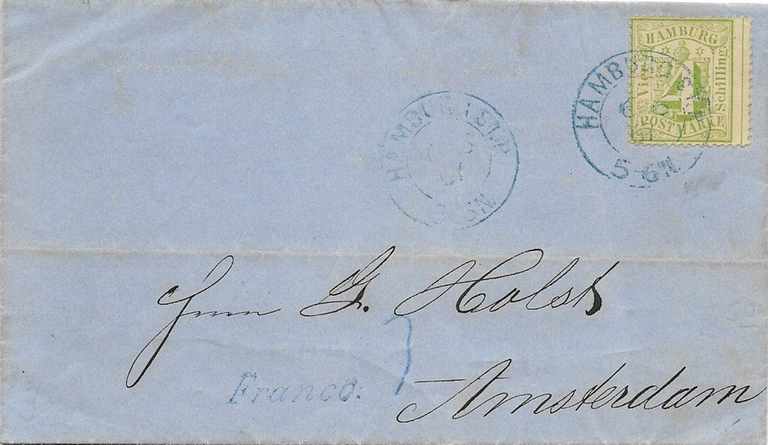 HAMBURG
Vier
4
Schilling
POSTMARKE
HAMBURG
5-6N.
HAMBURG
Herrn G. Holst
Franco.
Amsterdam